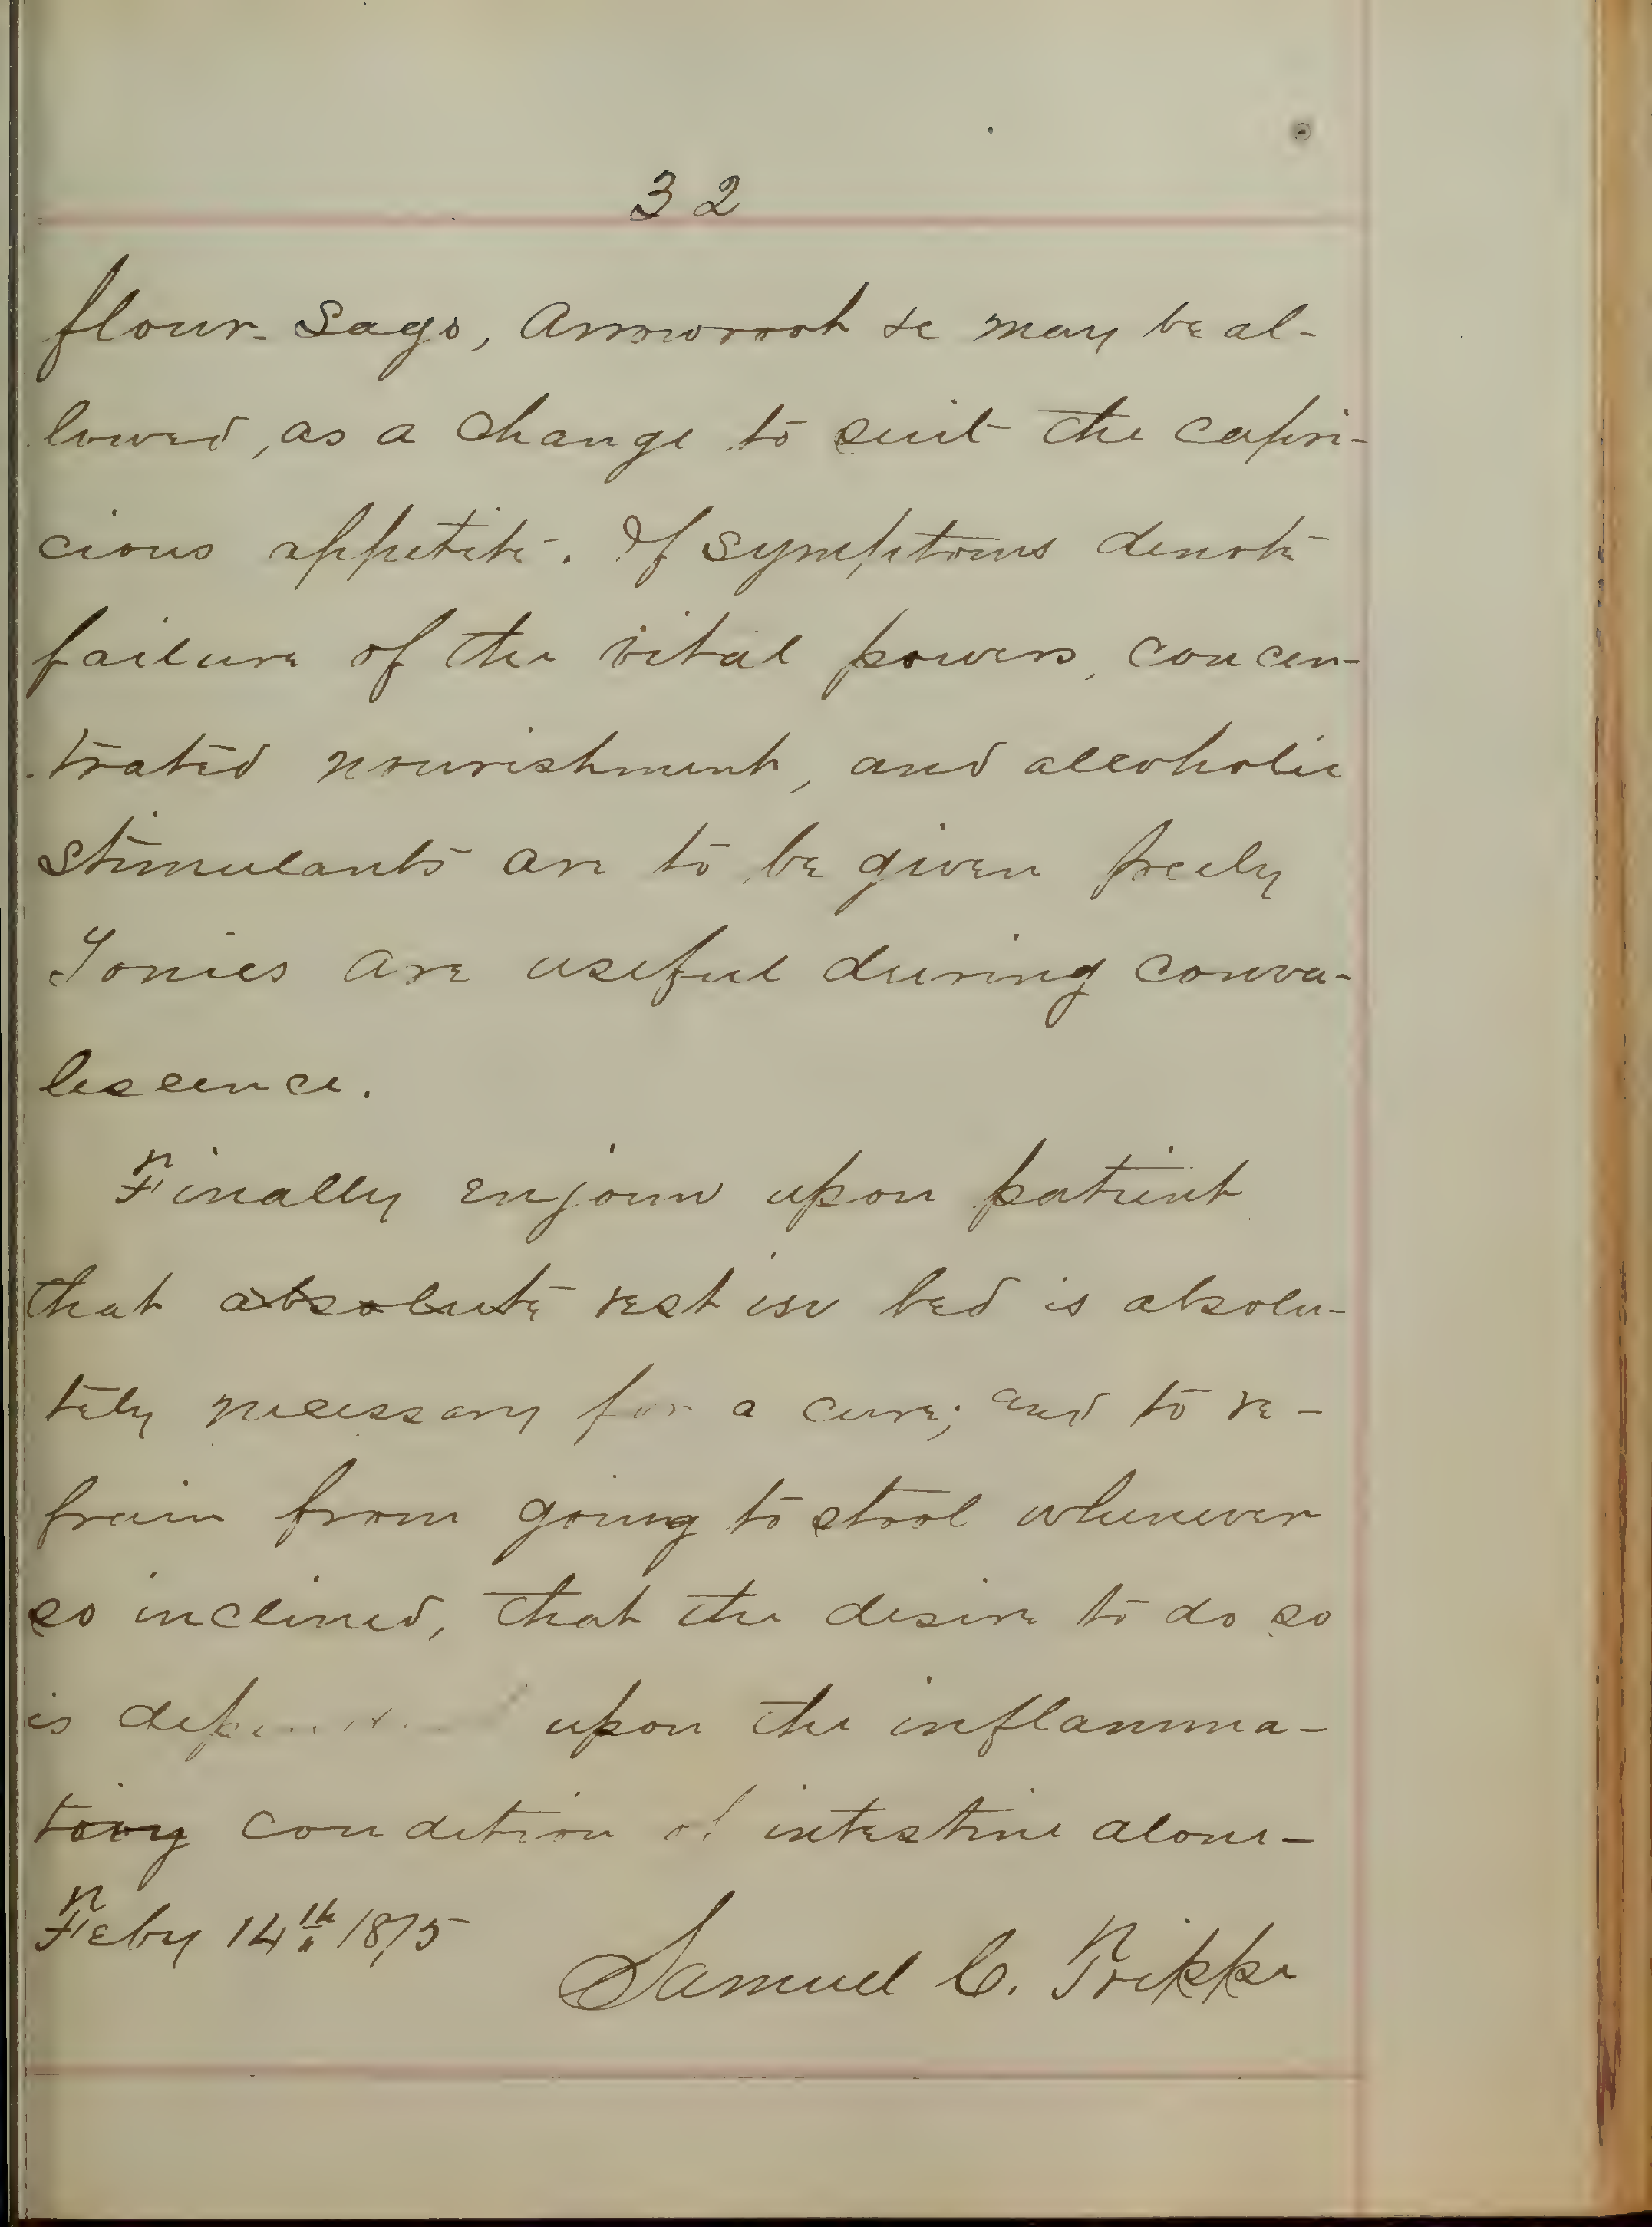 32
flour. Sago, Arrowroot &c may be al-
lowed, as a change to suit the capri-
cious appetite. If symptoms denote
failure of the vital powers, concen-
trated nourishment, and alcoholic
stimulants are to be given freely
Tonics are useful during conva-
lescence.
Finally enjoin upon patient
that absolute rest in bed is absolu-
tely necessary for a cure; and to re-
frain from going to stool whenever
so inclined, that the desire to do so
is upon the inflamma-
tory condition of intestine alone-
Feby 14th 1875
Samuel C.